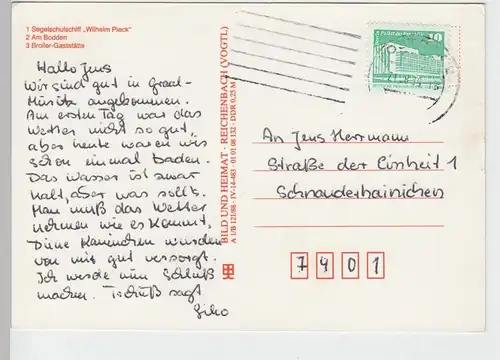 1 Segelschulschiff „Wilhelm Pieck"
2 Am Bodden
3 Broiler-Gaststätte
Hallo Jens
Wir sind gut in Graal-
Müritz angekommen.
Am ersten Tag war das
Wetter nicht so gut,
aber heute waren wir
schon einmal baden.
Das Wasser ist zwar
kalt, aber was sollts.
Man muß das Wetter
nehmen wie es kommt.
Deine Kaninchen wurden
von mir gut versorgt.
Ich werde nun Schluß
machen. Tschüß sagt
BILD UND HEIMAT · REICHENBACH (VOGTL)
A 1/B 121/88 · IV-14-483 · 01 01 08 132 · DDR 0,25 M
10
An Jens Herrmann
Straße der Einheit 1
Schnauderhainichen
7401